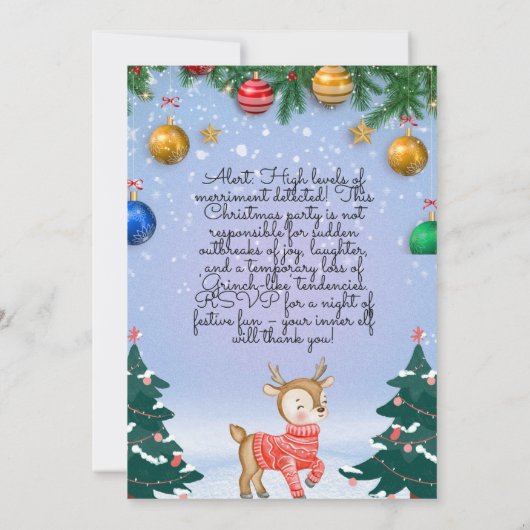 Alert: High levels of
merriment detected! This
Christmas party is not
responsible for sudden
outbreaks of joy, laughter,
and a temporary loss of
'Grinch-like' tendencies.
RSVP for a night of
festive fun – your inner elf
will thank you!